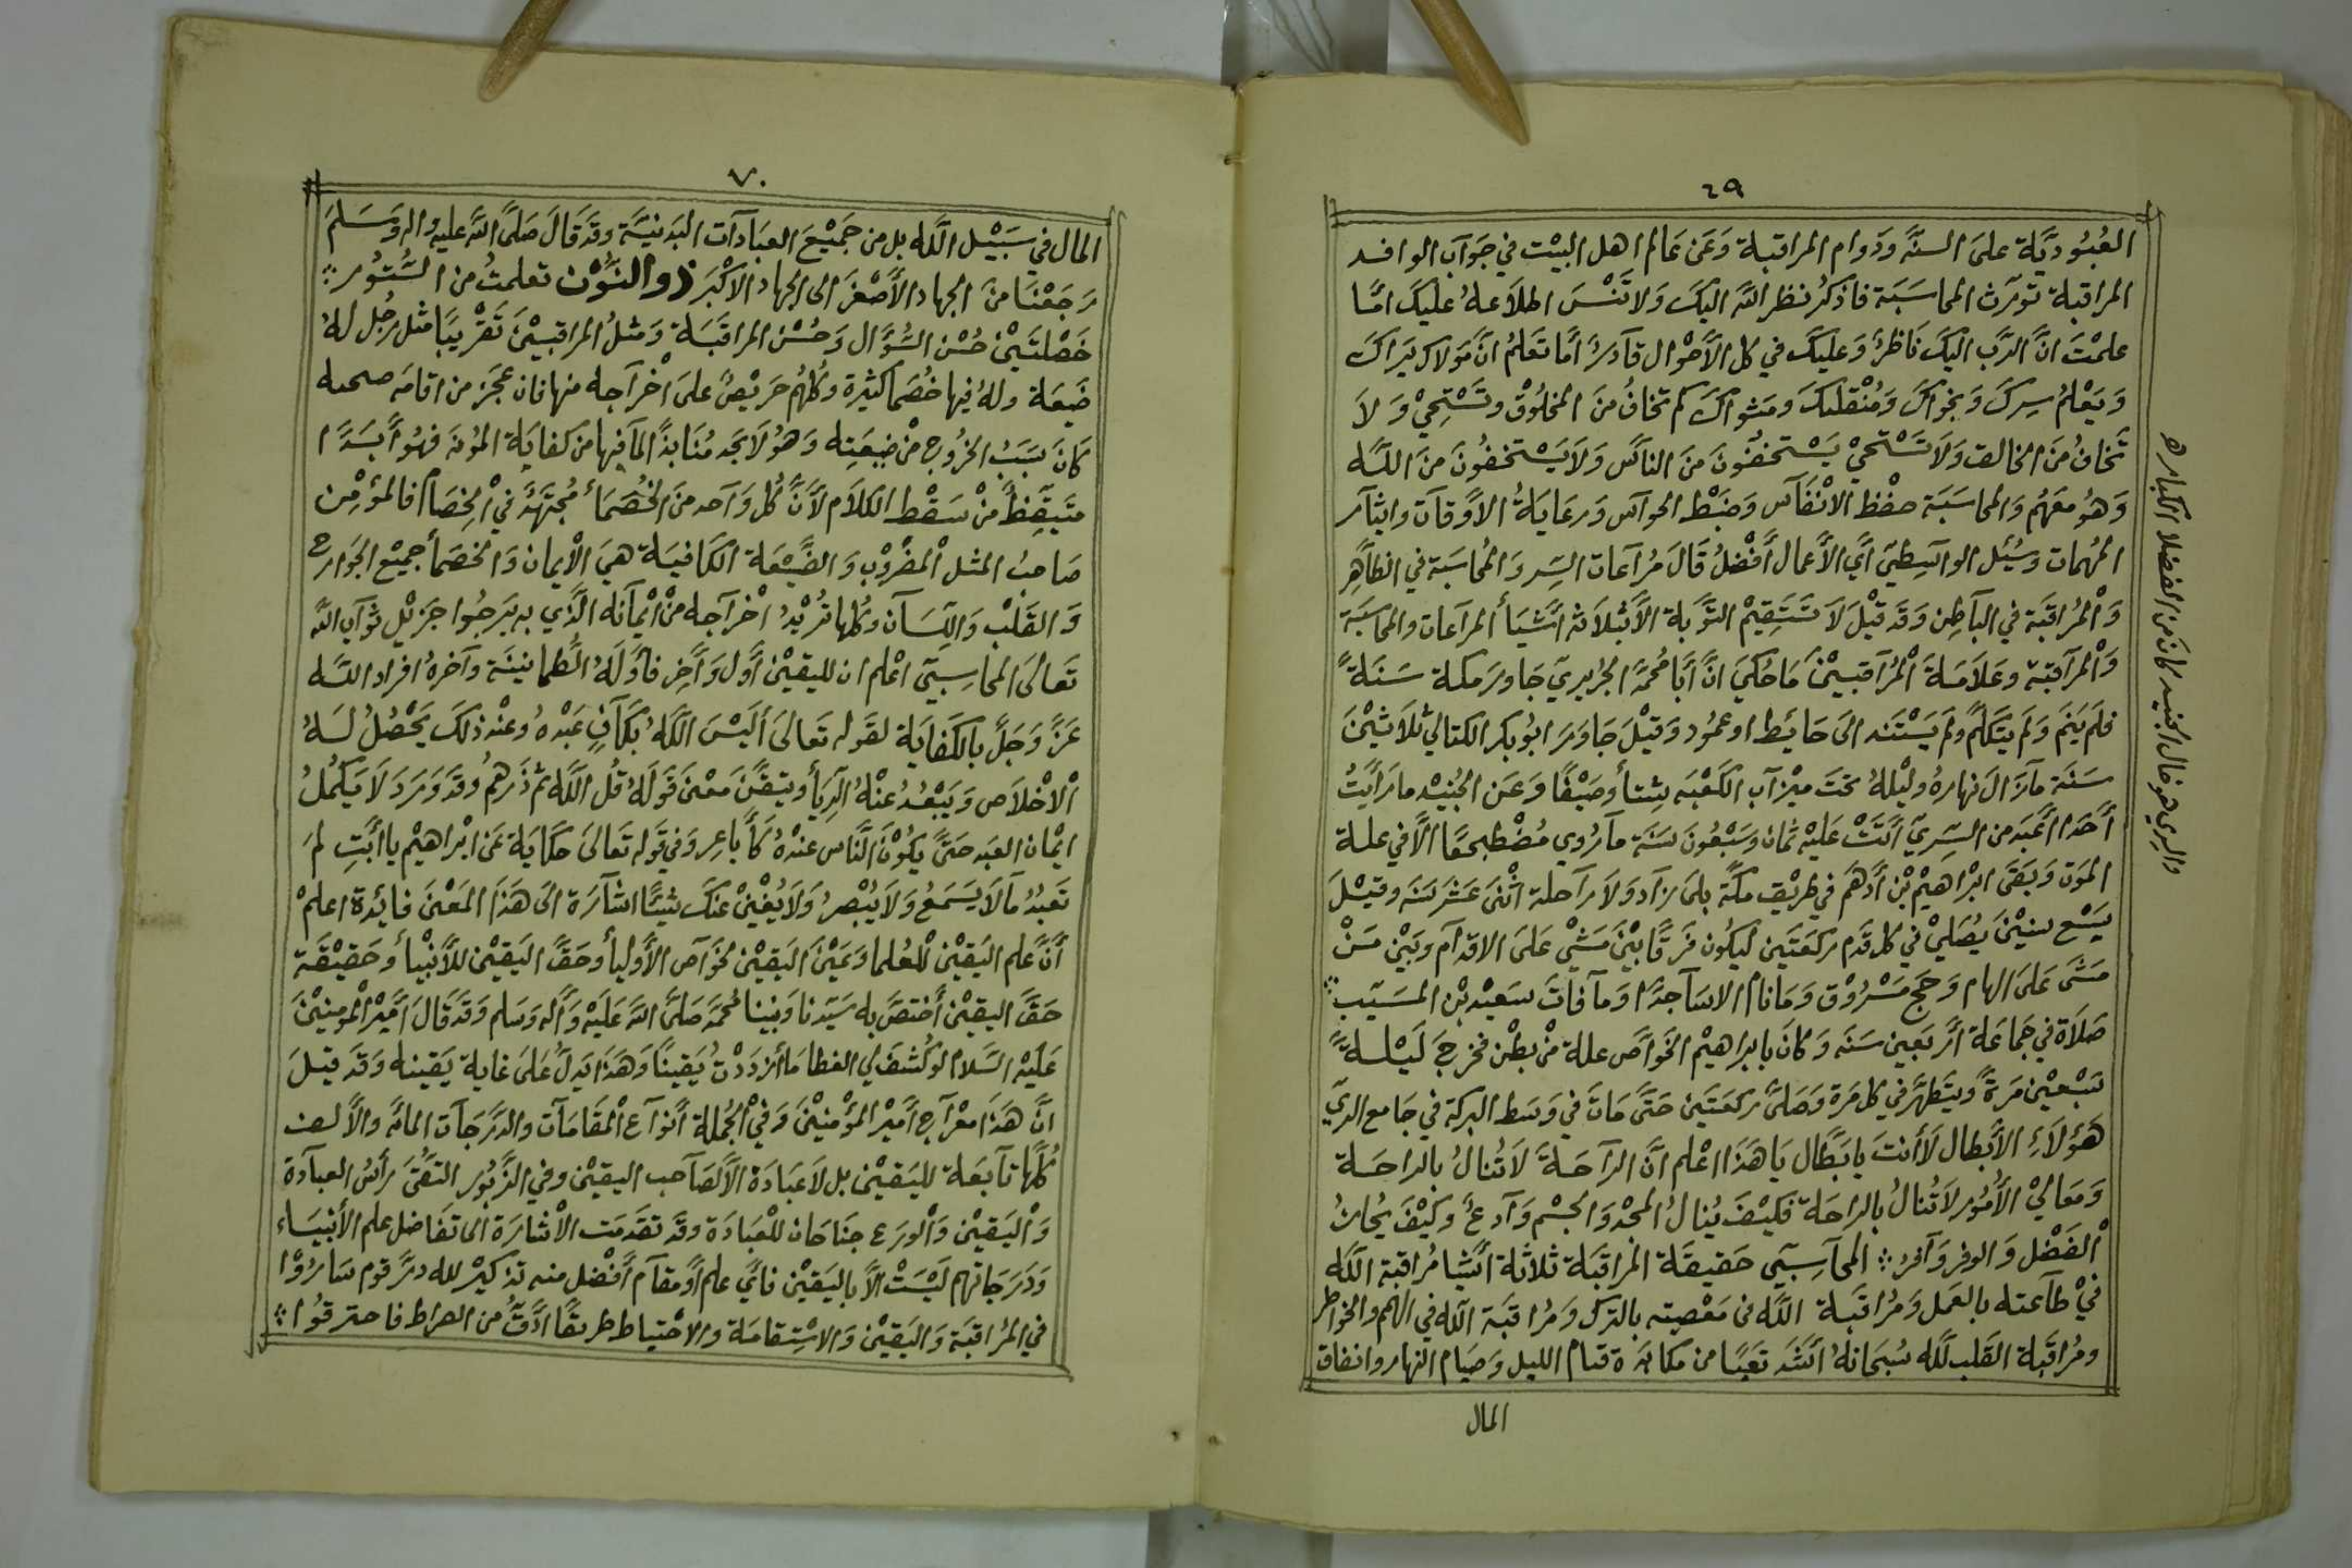 ٦٩
العُبُودِيَّة علىَ السنَّه ودَوام المراقبة وَعَن عَالم اهل البيْت في جَوَاب الوافد
المراقبة تورث المحاسَبَة فاذكرُ نظر اللهَ اليكَ وَلا تَنْسَ اطلاَعهُ عليكَ امَّا
علمْتَ انَّ الرَّب اليكَ نَاظرٌ وَعليكَ في كل الأحْوال قادرٌ أمَا تَعلمُ انَّ مَوْلاك يَراكَ
وَيَعْلمُ سِركَ وَنجوَاكَ وَمُنْقلبكَ ومَثواكَ كم تخافُ منَ المخلوْق وتَسْتحِيْ وَلاَ
تَخافُ منَ الخالق وَلاَ تَسْتحيْ يَسْتخفُونَ منَ الناسَ وَلاَ يَسْتخفُونَ منَ اللَّه
وَهوُ معَهُم وَالمحاسَبَة حفْظ الانْفَاس وَضَبْط الحوَاس وَرعَايَةُ الاوقات وايثار
المُهمات وسُئل الواسِطيَ أيَّ الأعمال أفْضلُ قَالَ مُراعَات السِّر وَالمُحاسَبَة في الظاهِر
وَالْمُرَاقبَة في البَاطِن وَقدَ قيْلَ لاَ تَسْتقيْم التَّوبَة الاَّ بثلاَثة أشيَأ المراعات والمحاسَبَة
وَالْمرَاقبَة وعَلاَمَة الْمُرَاقبيْنَ مَا حُكيَ انَّ أبَا مُحمَّد الجُريريَ جَاورَ مَكة سَنَةً
فلَم يَنمَ وَلَم يتَكلَّم ولَم يَسْتند الىَ حَائِط اوعمُود وَقيْلَ جَاوَرَ ابُوبكر الكتاليْ ثلاَثيْنَ
سَنَة مَا زَالَ نهارهُ وليْلهُ تحتَ ميْزاب الكَعْبَه شِتأ وصَيْفًا وَعَن الجُنيْد ما رَأيْتُ
أحَدا اعْبَد من السَّريَ اتَتْ عَليْهِ ثمان وسَبْعُونَ سَنَة مَا رُوي مُضْطجعًا الاَّ في علة
الموَت وَبَقىَ ابْراهيْم بْن أدهَم في طريْق مكَّة بلىَ زاد وَلاَ راحلة اثْنىَ عَشرَ سَنَه وقيْلَ
سَبْع سنيْنَ يُصَليْ في كل قدَم ركعَتَين ليكوُن فَرقًا بيْنَ مَشيْ عَلىَ الاقدام وَبَيْن مَنْ
مَشىَ عَلىَ الهام وَحَج مَسْرُوق وَمَا نام الاسَاجدًا وَما فاتَ سَعيْد بْن المسَيّب
صَلاَة في جَماعَة أرْبَعين سَنَه وَكانَ بابراهيْم الخَوَاص علة منْ بطْن فخرجَ لَيْلةً
سَبْعيْن مَرةً ويتَطهَّر في كل مَرة وَصَلىَّ ركعَتَين حَتىَّ مَاتَ في وَسَط البركة في جَامع الريّ
هَؤلاَءِ الأبطال لاَ أنتَ يا بَطَّال يَا هَذا اعْلم انَّ الرَاحَةَ لاَ تُنالُ بالراحَة
وَمَعَاليْ الأُمُوْر لاَ تُنالُ بالراحَة فكَيْفَ يُنالُ المَجْدَ وَالجسْم وَادعٌ وكَيْفَ يُحازُ
الْفَضْل وَالوفر وَافرُ المحَاسِبيّ حَقيقَة المرَاقبَة ثلاثة أشْيا مُراقبة اللَّه
فيْ طاعته بالعَمل وَمُراقبَة اللَّه فى مَعْصيته بالترك وَمُراقبَة اللَّه في الهم والخَواطر
ومُراقَبة القَلب للَّه سُبحَانهُ اشدَ تعَبًا من مكابَدة قيام الليل وَصيَام النهار وانفاق
المال
والري هو خال الجنيد كان من الفضلا الكبار
٧٠
المال في سَبيْل اللَّه بل من جَميْعَ العبَادات البَدنيَّة وقدَ قَالَ صَلىَّ اللهَ عليهِ واله وَسَلمَ
رَجَعْنَا منَ الجهاد الأصْغَر الى الجهاد الاكْبَر ذو النوْن تعلمتُ من السنَّوُر
خَصْلتَيْن حُسْن السُّؤَال وَحُسْن المراقَبَة وَمثلُ المراقبيْنَ تَقْريبًا مثل رجُل لهُ
ضَيعَة ولهُ فيها خُصَما كثيرة وَكلهُم حَريْصٌ علىَ اخْراجه منها فان عجَزَ من اقامَه
كانَ سَبَبُ الخرُوج منْ ضيعَتِه وَهوُ لاَ يجَد مُنَابذًا لما فيها من كفايَة الموُنه فهوُ أبَدًا
متَيقظ منْ سَقْط الكلاَم لأنَّ كُل وَاحد منَ الخُصَمَأ مُجتَهدً في الْخِصَام فالمؤمْن
صَاحبُ المثل الْمضْرُوْب وَالضَّيْعَة الكَافيَة هيَ الأيمان وَالخصَمأ جميْع الجَوَارح
وَالقَلْب وَاللِسَان وكُلها تُريْدُ اخْراجه منْ ايْمانه الَّذي به يَرجُوا جَزيْل ثوَاب اللهَ
تَعالىَ المحاسِبيّ اعْلم ان لليقيْن أوَّل وَأخِر فأوَّلهُ الطمانينَة وآخرهُ افراد اللَّه
عَزَّ وَجَلَّ بالكَفايَة لقَوله تعَالىَ ألَيْسَ اللَّهُ بكَافٍ عَبْدهُ وعنْد ذلكَ يَحْصُلُ لَهُ
الاْخلاَص وَيَبْعُدُ عنْهُ الرِيَأ ويتقَّنَ معْنىَ قَولَهُ قُل اللَّه ثمَّ ذَرهمُ وقدَ وَرَدَ لاَ يَكمُلُ
ايْمان العَبد حَتىَّ يَكوُن النَّاس عندْهُ كَأباعِر وَفي قَوله تعَالىَ حكَايَة عَن ابْراهيْم يا أبَتِ لمَ
تَعْبُدُ مَا لاَ يَسْمَعُ وَلاَ يُبْصرُ وَلاَ يُغْنيْ عَنكَ شيئًا اشارَة الىَ هَذا المَعْنىَ فائِدة اعلمْ
أنَّ عَلم اليَقيْن للْعُلما وَعَيْنَ اليَقيْن لخوَاص الأوليأ وحَقَّ اليَقيْن للأنْبْيأ وحَقيْقَة
حَقَّ اليقيْن أختصَّ به سَيّدنا ونَبينا مُحمَّد صَلىَّ اللهَ عَلَيْه وَاله وَسَلم وَقدَ قَالَ أميْر الْمؤمنيْنَ
عَليْه السَّلام لو كُشفَ لي الغطا مَا أزدَدْتُ يَقينًا وَهَذا يَدلَّ عَلىَ غاية يَقينه وَقدَ قيلَ
انَّ هَذا معْراج أميْر المؤمْنيْنَ وَفيْ الجُملة أنوَاع الْمقَامَات والدَّرجَات المائة والالف
كُلَّها تابعَة لليَقيْن بل لاَ عبَادَة الاَّ لصَاحب اليقيْن وفي الزَّبُور التقَىُ رأسُ العبَادة
وَاليَقيْن وَالوَرَع جنَاحَان للْعبَادَة وقدَ تقدَمَت الاشارَة الى تفَاضل علم الأنبيَاء
وَدَرجَاتهم لَيْسَتْ الاَّ باليَقيْن فأيَّ علم أوْ مقام أفْضل منه تذكيْر لله درَّ قوم سَاروْا
في المرُاقبَة وَاليَقيْن وَالاسْتقامَة والاحْتياط طريقًا ادَقَّ من الصراط فاحترقوُا